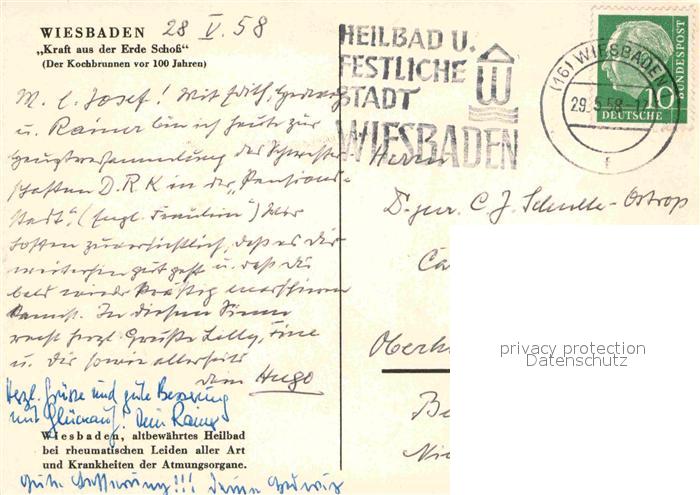 WIESBADEN 28 V. 58
„Kraft aus der Erde Schoß“
(Der Kochbrunnen vor 100 Jahren)
M. l. Josef! Mit Edith, Hedwig
u. Rainer bin ich heute zur
Hauptversammlung der Schwestern-
schaften D.R.K in der „Pensions-
stadt“, (
hoffen zuversichtlich, daß es Dir
weiterhin gut geht u. daß Du
bald wieder kräftig marschieren
kannst. In diesem Sinne
recht herzl. Grüße Lelly,
u. Dir sowie allerseits
Dein Hugo
Herzl. Grüsse und gute Besserung
mit Glückauf! Dein Rainer
Wiesbaden, altbewährtes Heilbad
bei rheumatischen Leiden aller Art
und Krankheiten der Atmungsorgane.
Gute Besserung!!! Deine Hedwig
HEILBAD U.
FESTLICHE
STADT
WIESBADEN
W
(16) WIESBADEN
29.5.58
f
10
DEUTSCHE
BUNDESPOST
Herrn
Dr. jur. C. J. Schulte-Ostrop
Ca
Oberh
Be
Nie
privacy protection
Datenschutz